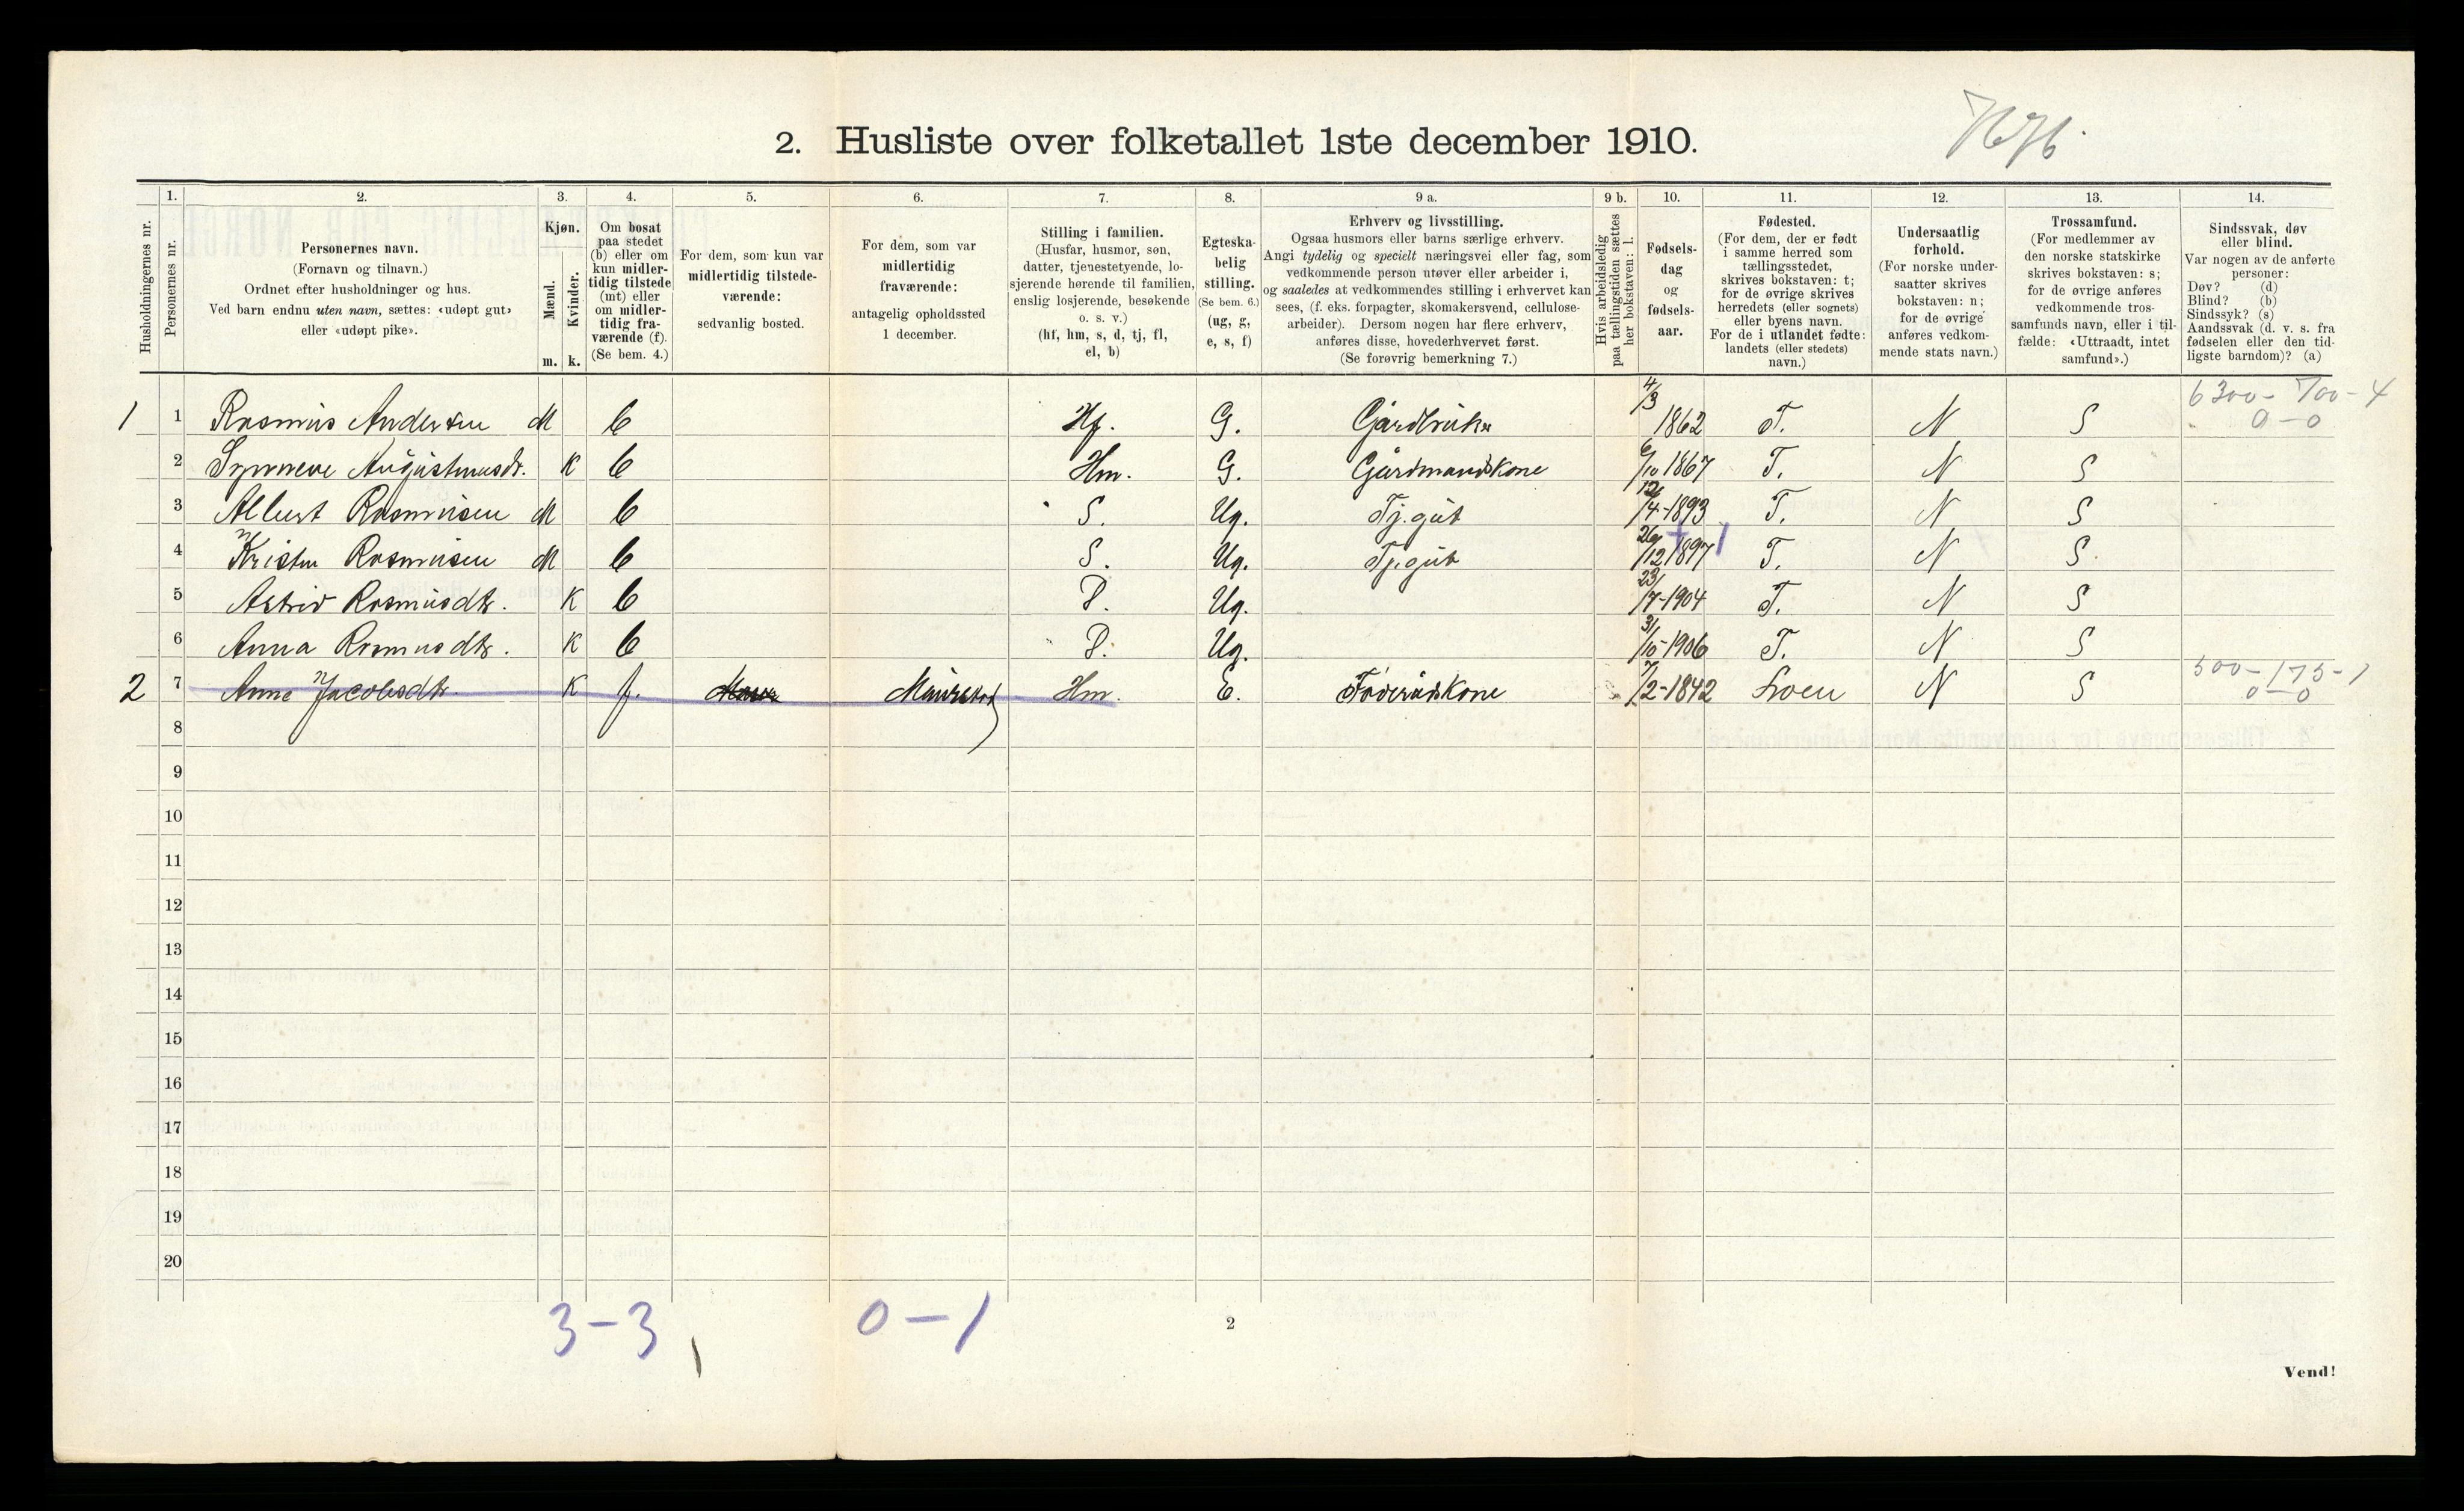 2. Husliste over folketallet 1ste december 1910.
1. 2. 3. 4. 5. 6. 7. 8. 9 a. 9 b. 10. 11. 12. 13. 14.
Husholdningernes nr.
Personernes nr.
Personernes navn.
(Fornavn og tilnavn.)
Ordnet efter husholdninger og hus.
Ved barn endnu uten navn, sættes: «udøpt gut»
eller «udøpt pike».
Kjøn.
Mænd.
Kvinder.
m. k.
Om bosat
paa stedet
(b) eller om
kun midler-
tidig tilstede
(mt) eller
om midler-
tidig fra-
værende (f).
(Se bem. 4.)
For dem, som kun var
midlertidig tilstede-
værende:
sedvanlig bosted.
For dem, som var
midlertidig
fraværende:
antagelig opholdssted
1 december.
Stilling i familien.
(Husfar, husmor, søn,
datter, tjenestetyende, lo-
sjerende hørende til familien,
enslig losjerende, besøkende
o. s. v.)
(hf, hm, s, d, tj, fl,
el, b)
Egteska-
belig
stilling.
(Se bem. 6.)
(ug, g,
e, s, f)
Erhverv og livsstilling.
Ogsaa husmors eller barns særlige erhverv.
Angi tydelig og specielt næringsvei eller fag, som
vedkommende person utøver eller arbeider i,
og saaledes at vedkommendes stilling i erhvervet kan
sees, (f. eks. forpagter, skomakersvend, cellulose-
arbeider). Dersom nogen har flere erhverv,
anføres disse, hovederhvervet først.
(Se forøvrig bemerkning 7.)
Hvis arbeidsledig
paa tællingstiden sættes
her bokstaven: l.
Fødsels-
dag
og
fødsels-
aar.
Fødested.
(For dem, der er født
i samme herred som
tællingsstedet,
skrives bokstaven: t;
for de øvrige skrives
herredets (eller sognets)
eller byens navn.
For de i utlandet fødte:
landets (eller stedets)
navn.)
Undersaatlig
forhold.
(For norske under-
saatter skrives
bokstaven: n;
for de øvrige
anføres vedkom-
mende stats navn.)
Trossamfund.
(For medlemmer av
den norske statskirke
skrives bokstaven: s;
for de øvrige anføres
vedkommende tros-
samfunds navn, eller i til-
fælde: «Uttraadt, intet
samfund».)
Sindssvak, døv
eller blind.
Var nogen av de anførte
personer:
Døv? (d)
Blind? (b)
Sindssyk? (s)
Aandssvak (d. v. s. fra
fødselen eller den tid-
ligste barndom)? (a)
1 1 Rasmus Andersen M b Hf. G. Gårdbruker 4/3 1862 T. N S 6300-700-4 0-0
2 Synneve Augustinusdr. K b Hm. G. Gårdmandskone 6/10 1867 T. N S
3 Albert Rasmusen M b S. Ug. Tj. gut 12/4-1893 T. N S
4 Kristen Rasmusen M b S. Ug. Tj. gut 26/12 1897 T. N S
5 Astrid Rasmusdtr. K b D. Ug. 23/7-1904 T. N S
6 Anna Rasmusdtr. K b D. Ug. 31/10-1906 T. N S
2 7 Anne Jacobsdtr. K f. Maurstad Hm. E. Føderådskone 7/2-1842 N S 500-175-1 0-0
8
9
10
11
12
13
14
15
16
17
18
19
20
3-3 0-1
2
Vend!